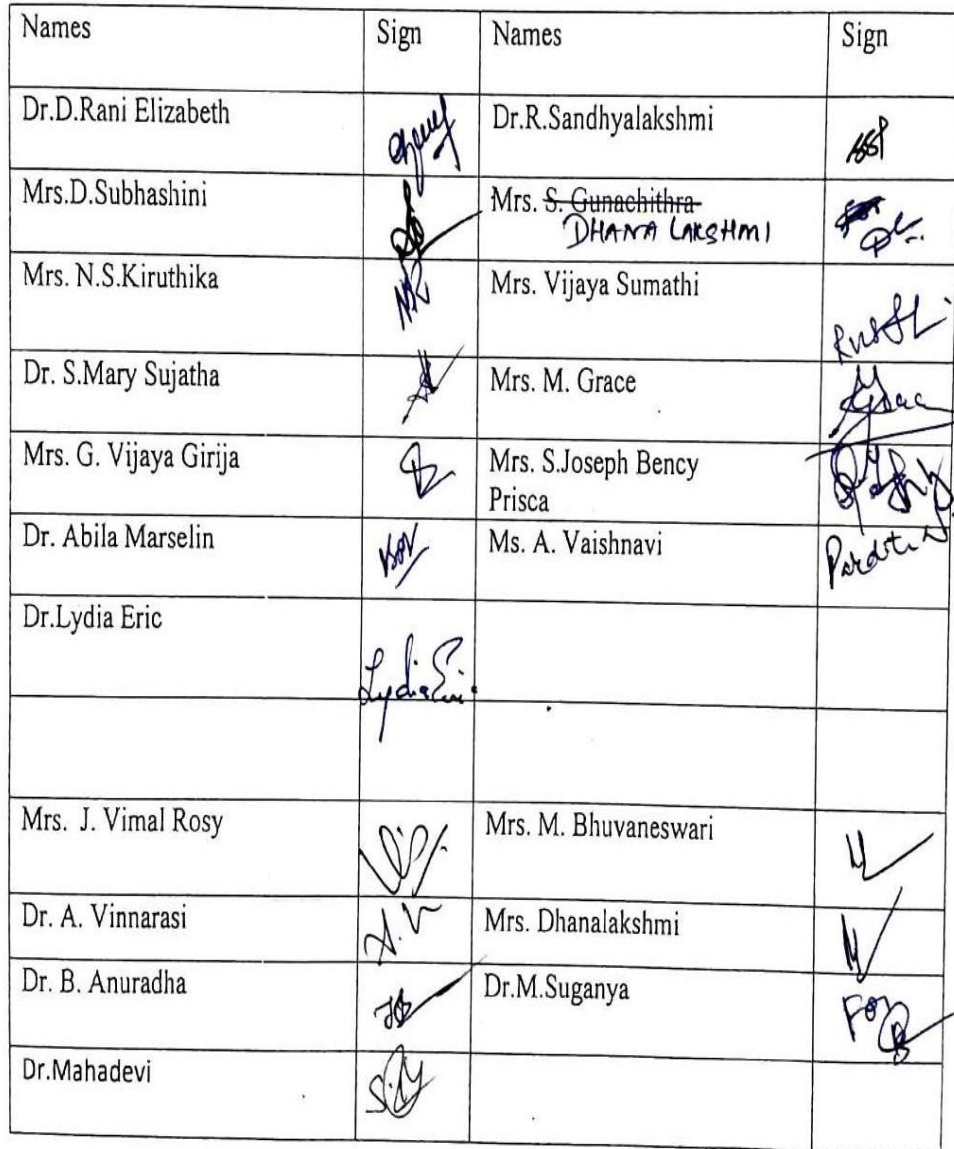 Names Sign Names Sign
Dr.D.Rani Elizabeth Dr.R.Sandhyalakshmi
Mrs.D.Subhashini Mrs. S. Gunachithra
DHANA LAKSHMI
Mrs. N.S.Kiruthika Mrs. Vijaya Sumathi
Dr. S.Mary Sujatha Mrs. M. Grace
Mrs. G. Vijaya Girija Mrs. S.Joseph Bency
Prisca
Dr. Abila Marselin Ms. A. Vaishnavi
Dr.Lydia Eric
Lydia Eric
Mrs. J. Vimal Rosy Mrs. M. Bhuvaneswari
Dr. A. Vinnarasi A.V Mrs. Dhanalakshmi
Dr. B. Anuradha Dr.M.Suganya For
Dr.Mahadevi